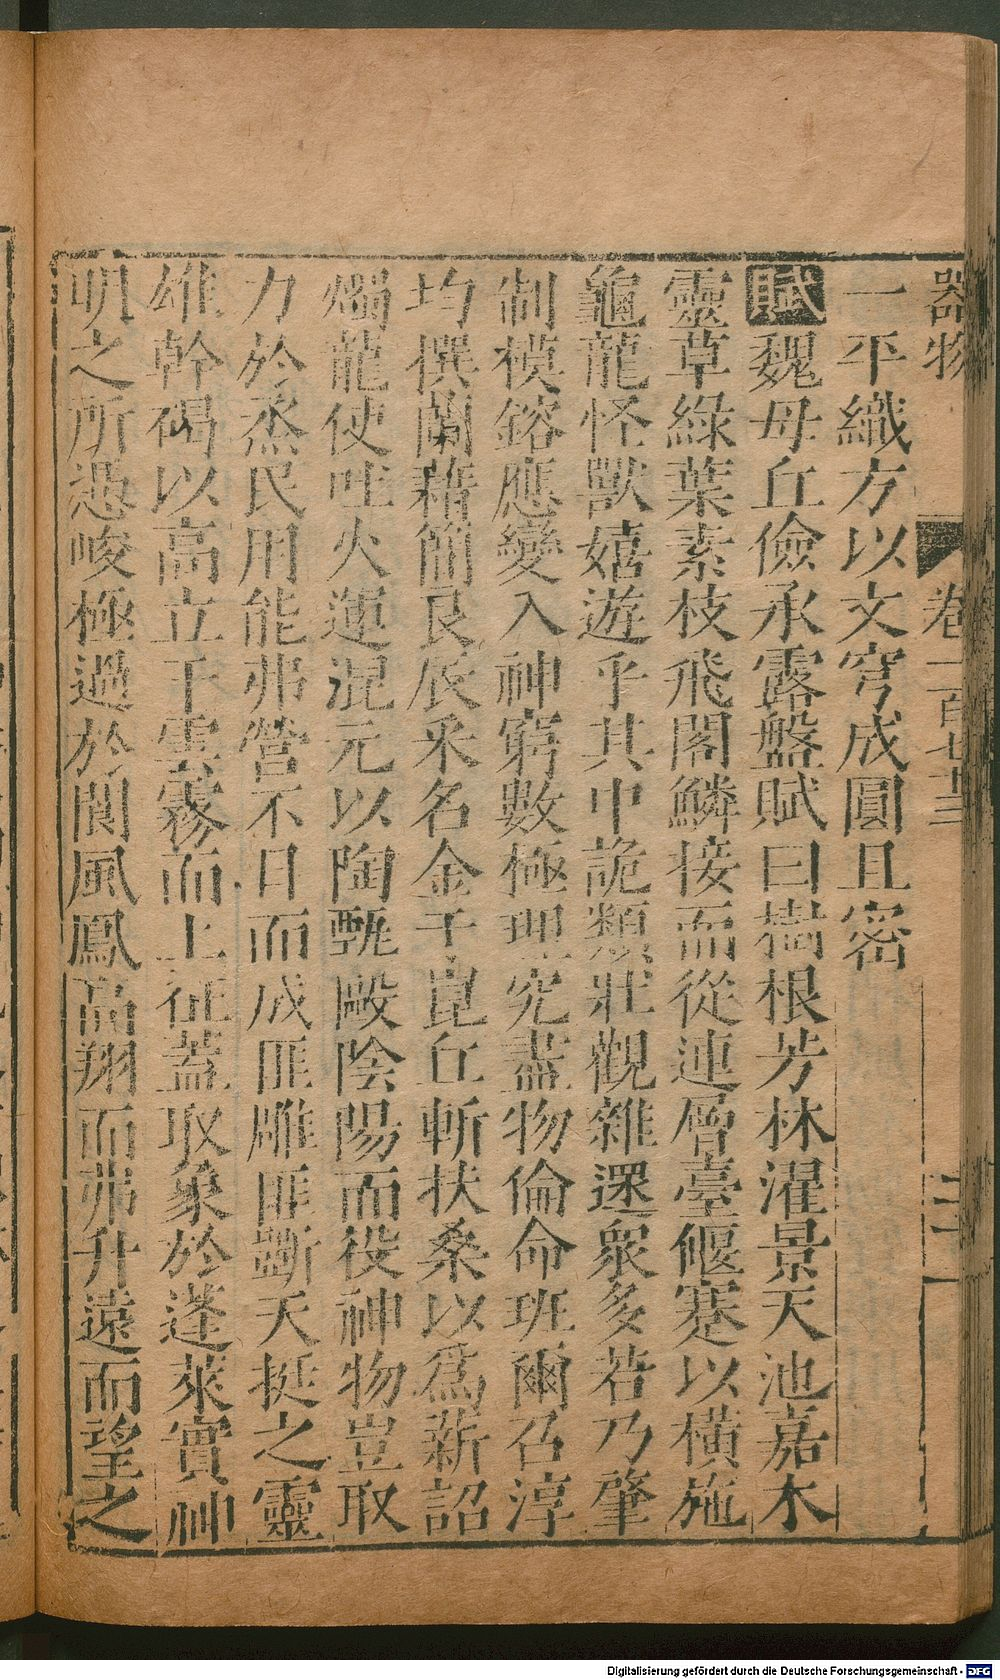 器物 卷一百七十三 三
一平織方以文穹成圓且密
賦魏毋丘儉承露盤賦曰樹根芳林濯景天池嘉木
靈草綠葉素枝飛閣鱗接而從連層臺偃蹇以橫施
龜龍怪獸嬉遊乎其中詭類壯觀雜遝衆多若乃肇
制模鎔應變入神窮數極理究盡物倫命班爾召淳
均撰蘭藉簡良辰釆名金于崑丘斬扶桑以爲新詔
燭龍使吐火運混元以陶甄毆陰陽而役神物豈取
力於烝民用能弗營不日而成匪雕匪斵天挺之靈
雄幹碣以高立干雲霧而上征蓋取象於蓬萊實神
明之所憑峻極過於閬風鳳高翔而弗升遠而望之
Digitalisierung gefördert durch die Deutsche Forschungsgemeinschaft - DFG